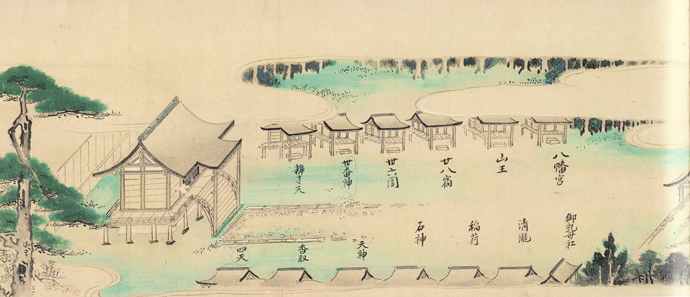 八幡宮
山王
廿八宿
丗番神
辨才天
御乳母社
清瀧
稲荷
石神
天神
香取
四天